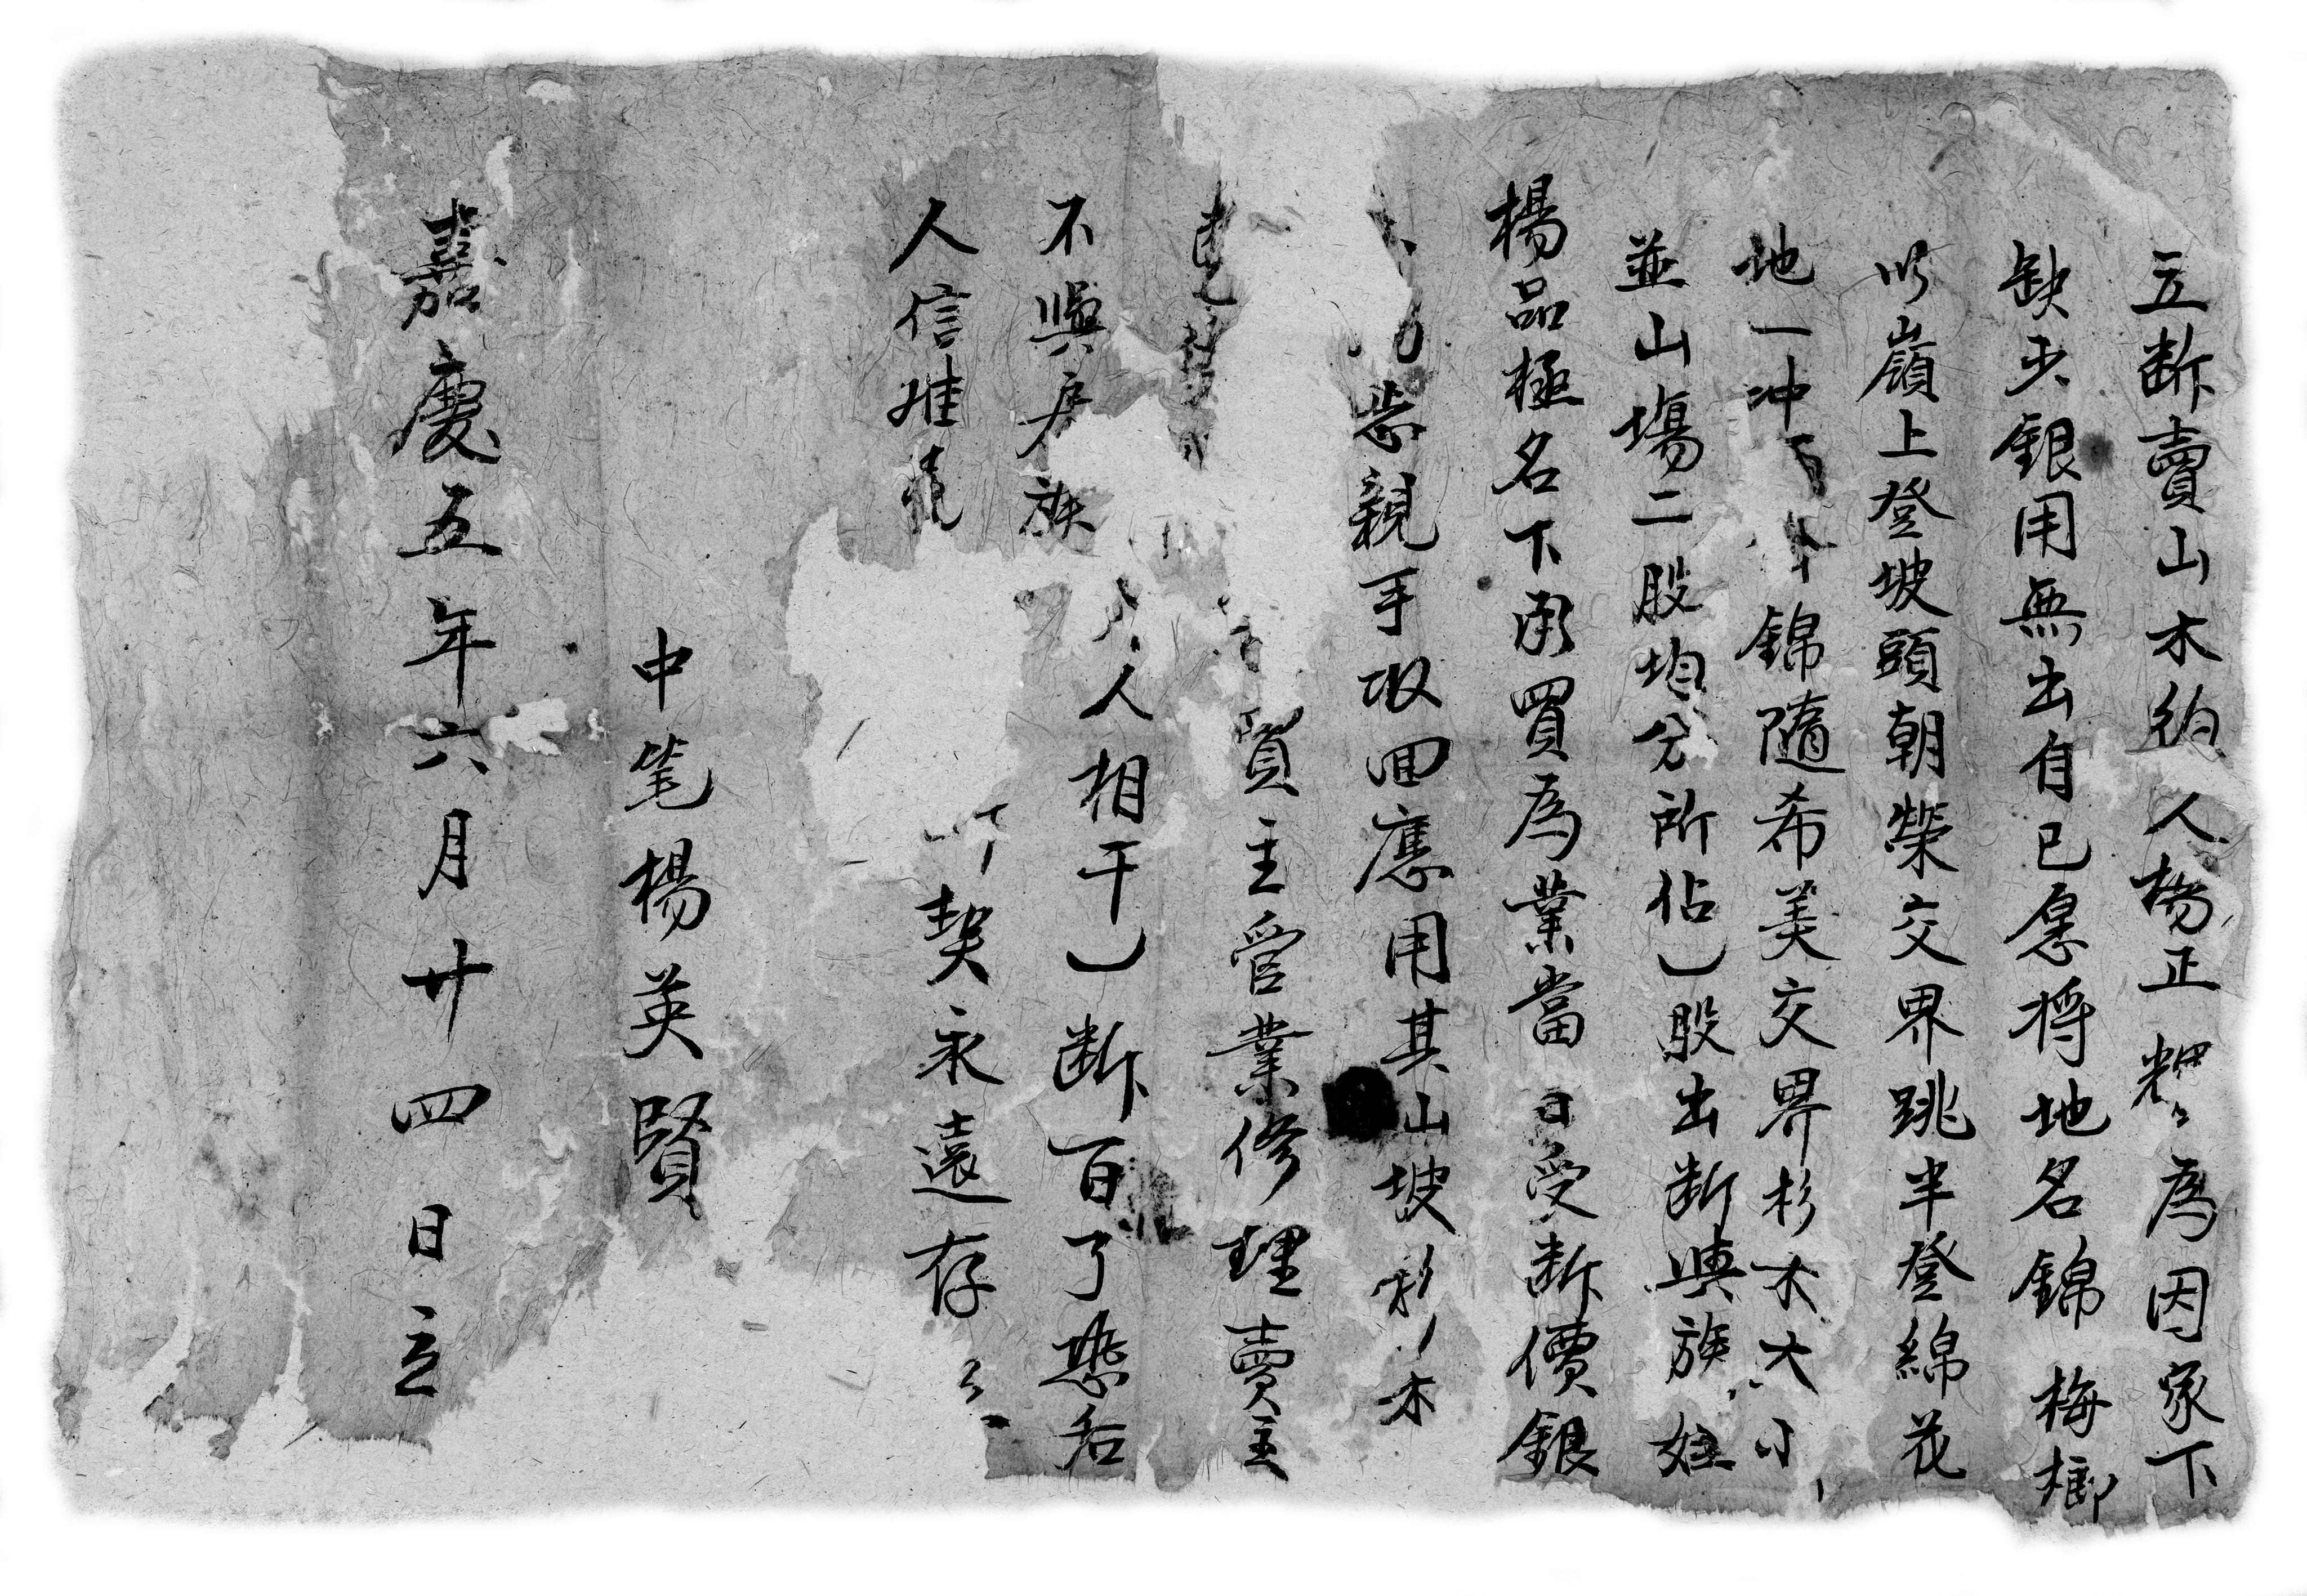 立断賣山木約人楊正輝為因家下
缺少銀用無出自己愿将地名錦梅榔
以嶺上登坡頭朝榮交界跳半登綿花
地一冲錦隨希美交界杉木大小
並山塲二股均分所佔乚股出断與族姪
楊品極名下承買為業當日受断價銀
恙親手収回應用其山坡杉木
買主管業修理賣主
不與房族人相干乚断百了恐后
人信难凭契永遠存
中笔楊英賢
嘉慶五年六月廿四日立